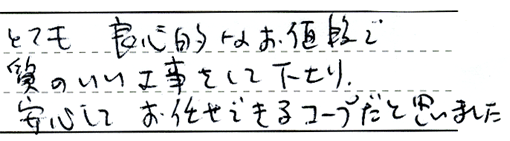 とても 良心的なお値段で
質のいい工事をして下さり、
安心して お任せできるコープだと思いました